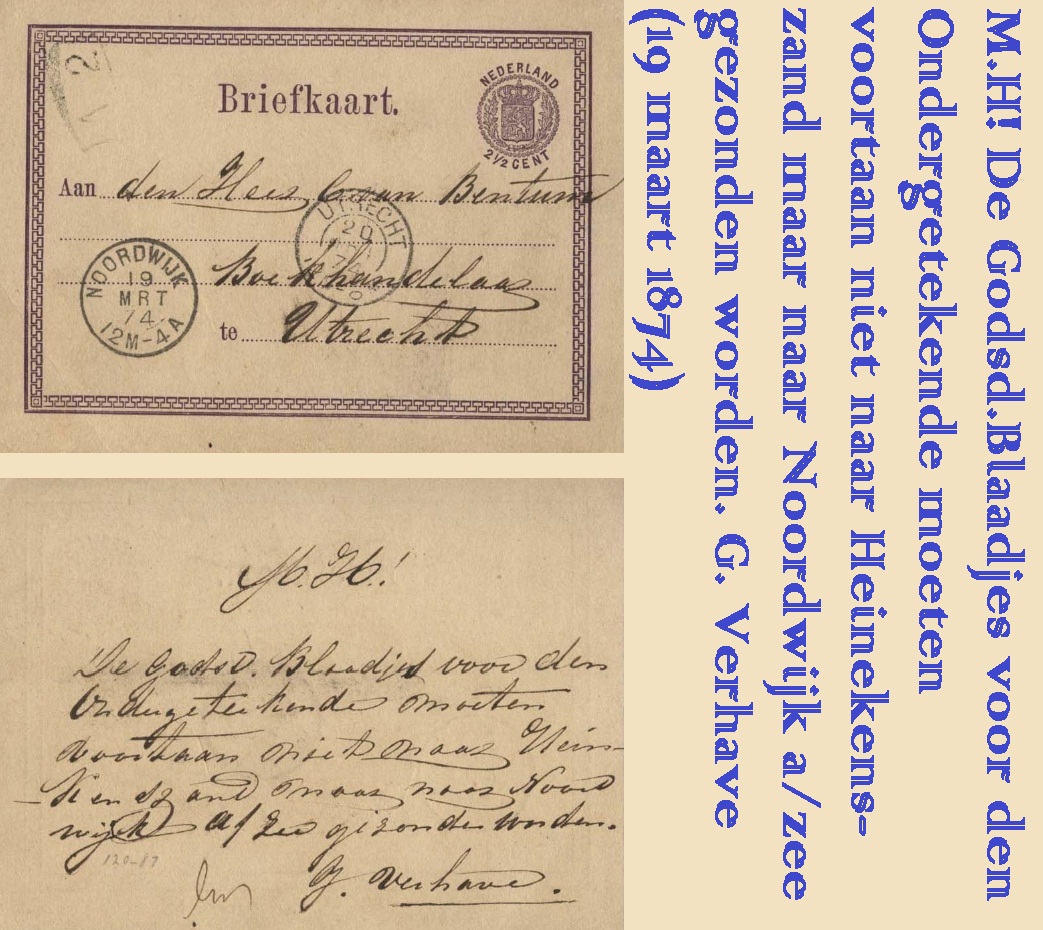 Briefkaart.
NEDERLAND
2½ CENT
Aan den Heer C van Bentum
UTRECHT
20
NOORDWIJK
19
MRT
74
12M-4A
Boekhandelaar
te Utrecht
M.H!
De Godsd. Blaadjes voor den
Ondergeteekende moeten
voortaan niet naar Hein-
-kenszand maar naar Noord
wijk a/zee gezonden worden.
G. Verhave.
120-87
M.H! De Godsd.Blaadjes voor den
Ondergetekende moeten
voortaan niet naar Heinekens-
zand maar naar Noordwijk a/zee
gezonden worden. G. Verhave
(19 maart 1874)